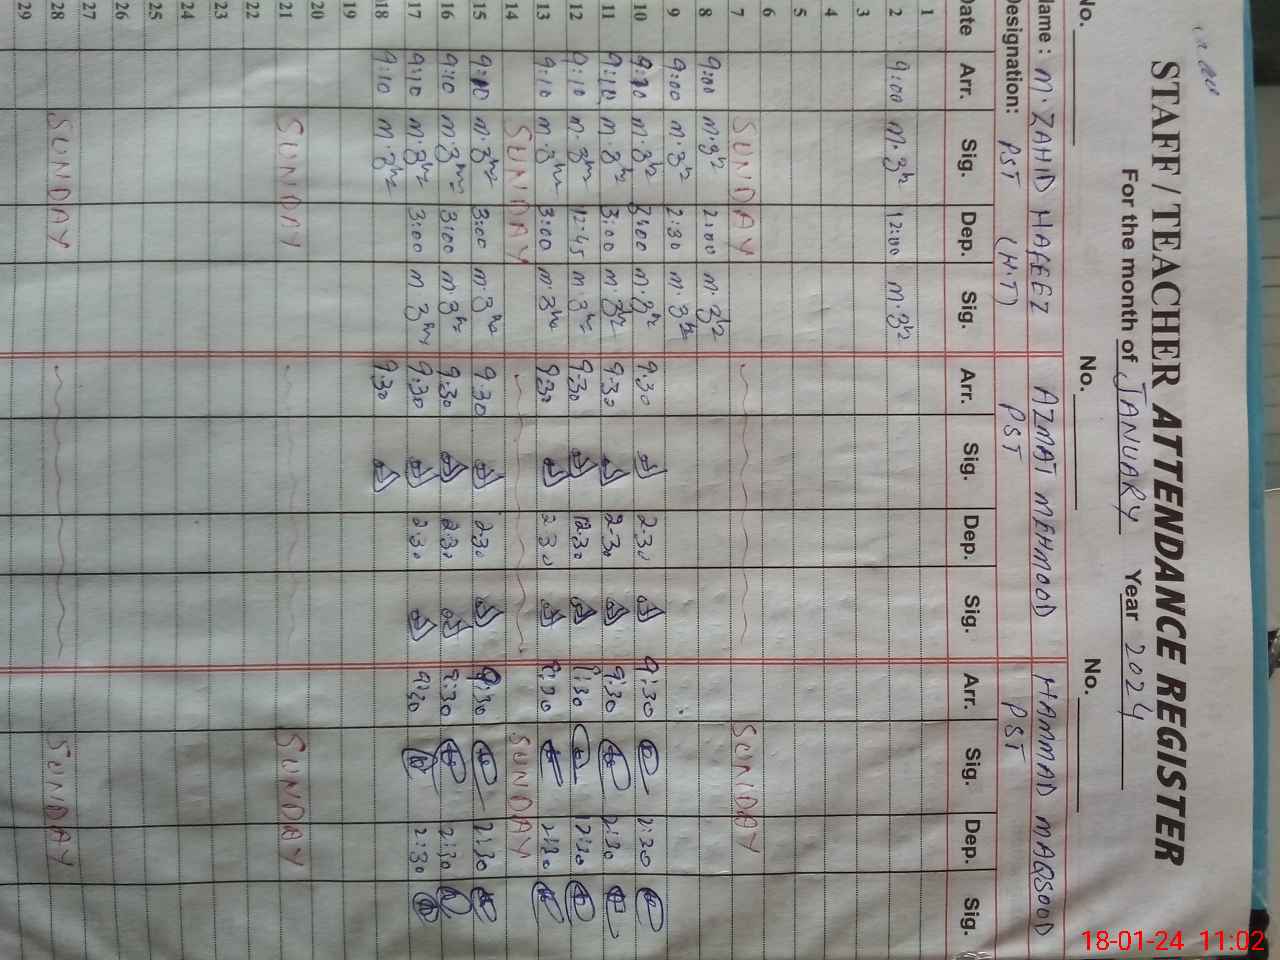 STAFF / TEACHER ATTENDANCE REGISTER
For the month of JANUARY Year 2024
No. No. No.
Name : M. ZAHID HAFEEZ AZMAT MEHMOOD HAMMAD MAQSOOD
Designation: PST (H.T) PST PST
Date Arr. Sig. Dep. Sig. Arr. Sig. Dep. Sig. Arr. Sig. Dep. Sig.
1
2 9:00 12:00
3
4
5
6
7 SUNDAY SUNDAY
8 9:00 2:00
9 9:00 2:30
10 9:10 3:00 9:30 2:30 9:30 2:30
11 9:10 3:00 9:30 2:30 9:30 2:30
12 9:10 12:45 9:30 12:30 12:30
13 9:10 3:00 9:30 2:30 2:30
14 SUNDAY SUNDAY
15 9:10 3:00 9:30 2:30 9:30 2:30
16 9:10 3:00 9:30 2:30 9:30 2:30
17 9:10 3:00 9:30 2:30 9:30 2:30
18 9:10 9:30
19
20
21 SUNDAY SUNDAY
22
23
24
25
26
27
28 SUNDAY SUNDAY
29
18-01-24 11:02